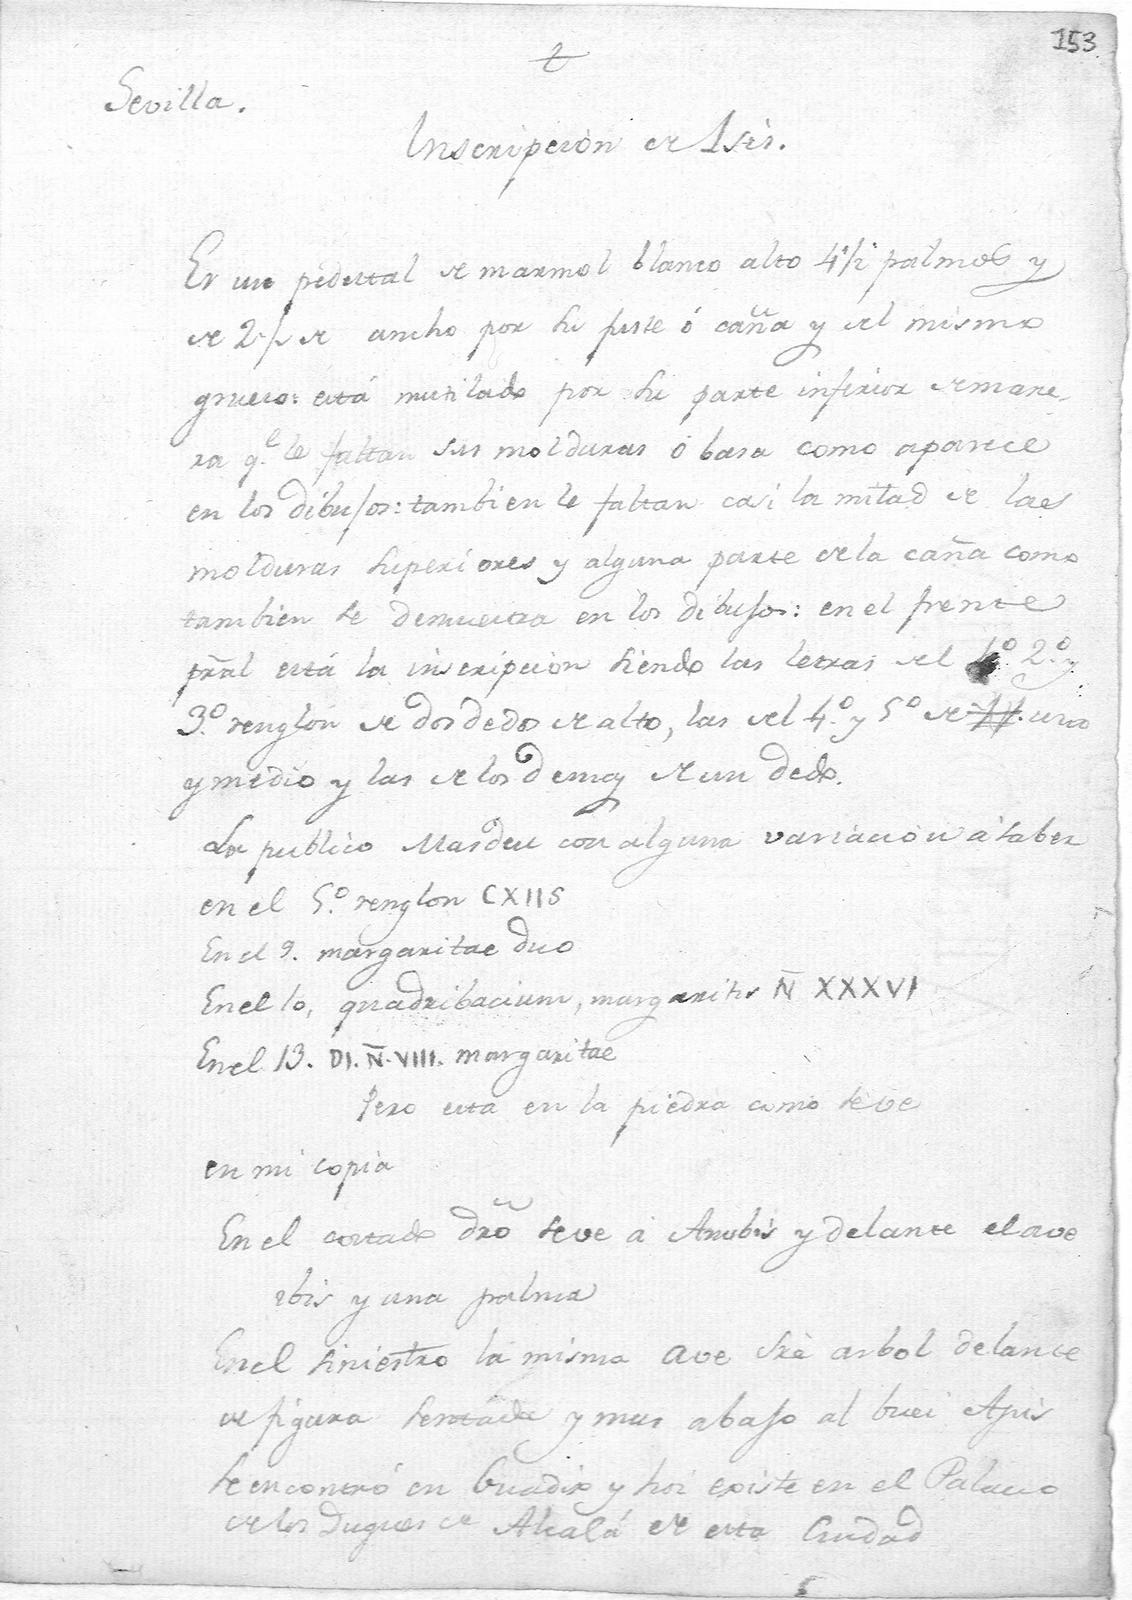 153
Sevilla.
Inscripcion de Isis.
Es un pedestal de marmol blanco alto 4 1/2 palmos y
de 2 1/2 de ancho por su fuste ó caña y del mismo
grueso: está mutilado por su parte inferior de mane-
ra q.e le faltan sus molduras ó basa como aparece
en los dibujos: tambien le faltan casi la mitad de las
molduras superiores y alguna parte de la caña como
tambien se demuestra en los dibujos: en el frente
pr̃al está la inscripcion siendo las letras del 1º. 2.º y
3.º renglon de dos dedos de alto, las del 4.º y 5º de uno
y medio y las de los demas de un dedo.
La publico Masdeu con alguna variacion á saber
en el 5.º renglon CXIIS
En el 9. margaritae duo
En el 10, quadribacium, margaritis N̄ XXXVI
En el 13. DI. N̄. VIII. margaritae
Pero esta en la piedra como se ve
en mi copia
En el costado dr̃o se ve á Anubis y delante el ave
ibis y una palma
En el siniestro la misma ave sre arbol delante
de figura sentada y mas abajo al buei Apis
Se encontró en Guadix y hoi existe en el Palacio
de los Duques de Alcalá de esta Ciudad